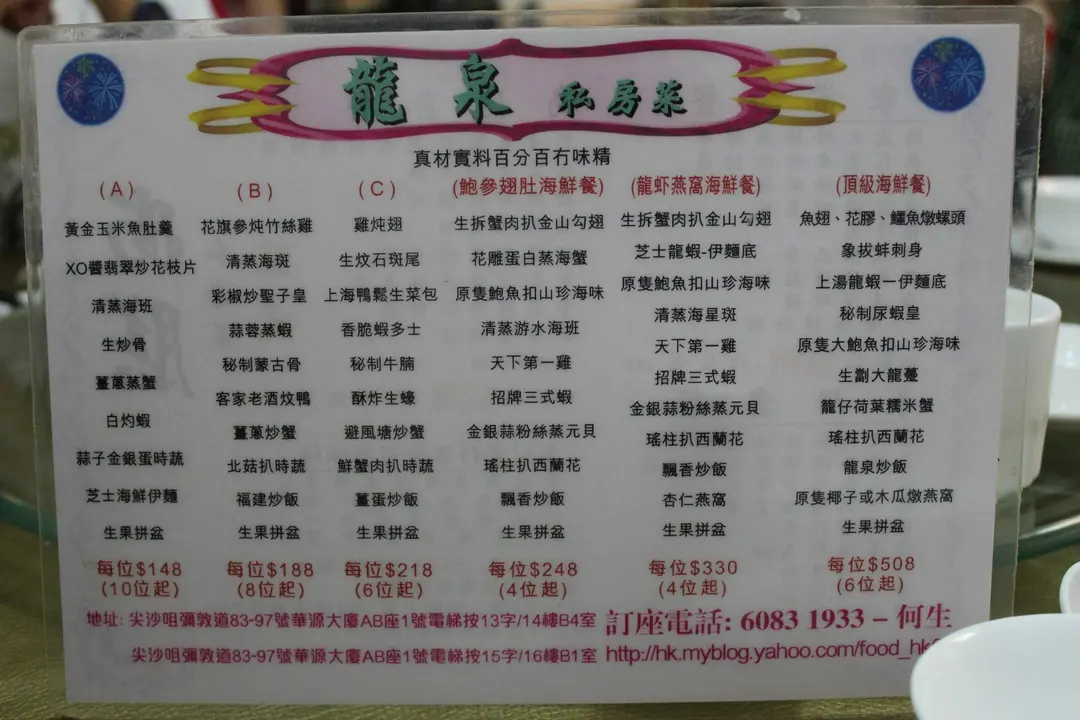 龍泉 私房菜
真材實料百分百冇味精
(A)
黃金玉米魚肚羹
XO醬翡翠炒花枝片
清蒸海班
生炒骨
薑蔥蒸蟹
白灼蝦
蒜子金銀蛋時蔬
芝士海鮮伊麵
生果拼盆
每位$148
(10位起)
(B)
花旗參炖竹絲雞
清蒸海斑
彩椒炒聖子皇
蒜蓉蒸蝦
秘制蒙古骨
客家老酒炆鴨
薑蔥炒蟹
北菇扒時蔬
福建炒飯
生果拼盆
每位$188
(8位起)
(C)
雞炖翅
生炆石斑尾
上海鴨鬆生菜包
香脆蝦多士
秘制牛腩
酥炸生蠔
避風塘炒蟹
鮮蟹肉扒時蔬
薑蛋炒飯
生果拼盆
每位$218
(6位起)
(鮑參翅肚海鮮餐)
生拆蟹肉扒金山勾翅
花雕蛋白蒸海蟹
原隻鮑魚扣山珍海味
清蒸游水海班
天下第一雞
招牌三式蝦
金銀蒜粉絲蒸元貝
瑤柱扒西蘭花
飄香炒飯
生果拼盆
每位$248
(4位起)
(龍虾燕窩海鮮餐)
生拆蟹肉扒金山勾翅
芝士龍蝦-伊麵底
原隻鮑魚扣山珍海味
清蒸海星斑
天下第一雞
招牌三式蝦
金銀蒜粉絲蒸元貝
瑤柱扒西蘭花
飄香炒飯
杏仁燕窩
生果拼盆
每位$330
(4位起)
(頂級海鮮餐)
魚翅、花膠、鱷魚燉螺頭
象拔蚌刺身
上湯龍蝦一伊麵底
秘制尿蝦皇
原隻大鮑魚扣山珍海味
生劏大龍躉
籠仔荷葉糯米蟹
瑤柱扒西蘭花
龍泉炒飯
原隻椰子或木瓜燉燕窩
生果拼盆
每位$508
(6位起)
地址: 尖沙咀彌敦道83-97號華源大廈AB座1號電梯按13字/14樓B4室
尖沙咀彌敦道83-97號華源大廈AB座1號電梯按15字/16樓B1室
訂座電話: 6083 1933 – 何生
http://hk.myblog.yahoo.com/food_hk